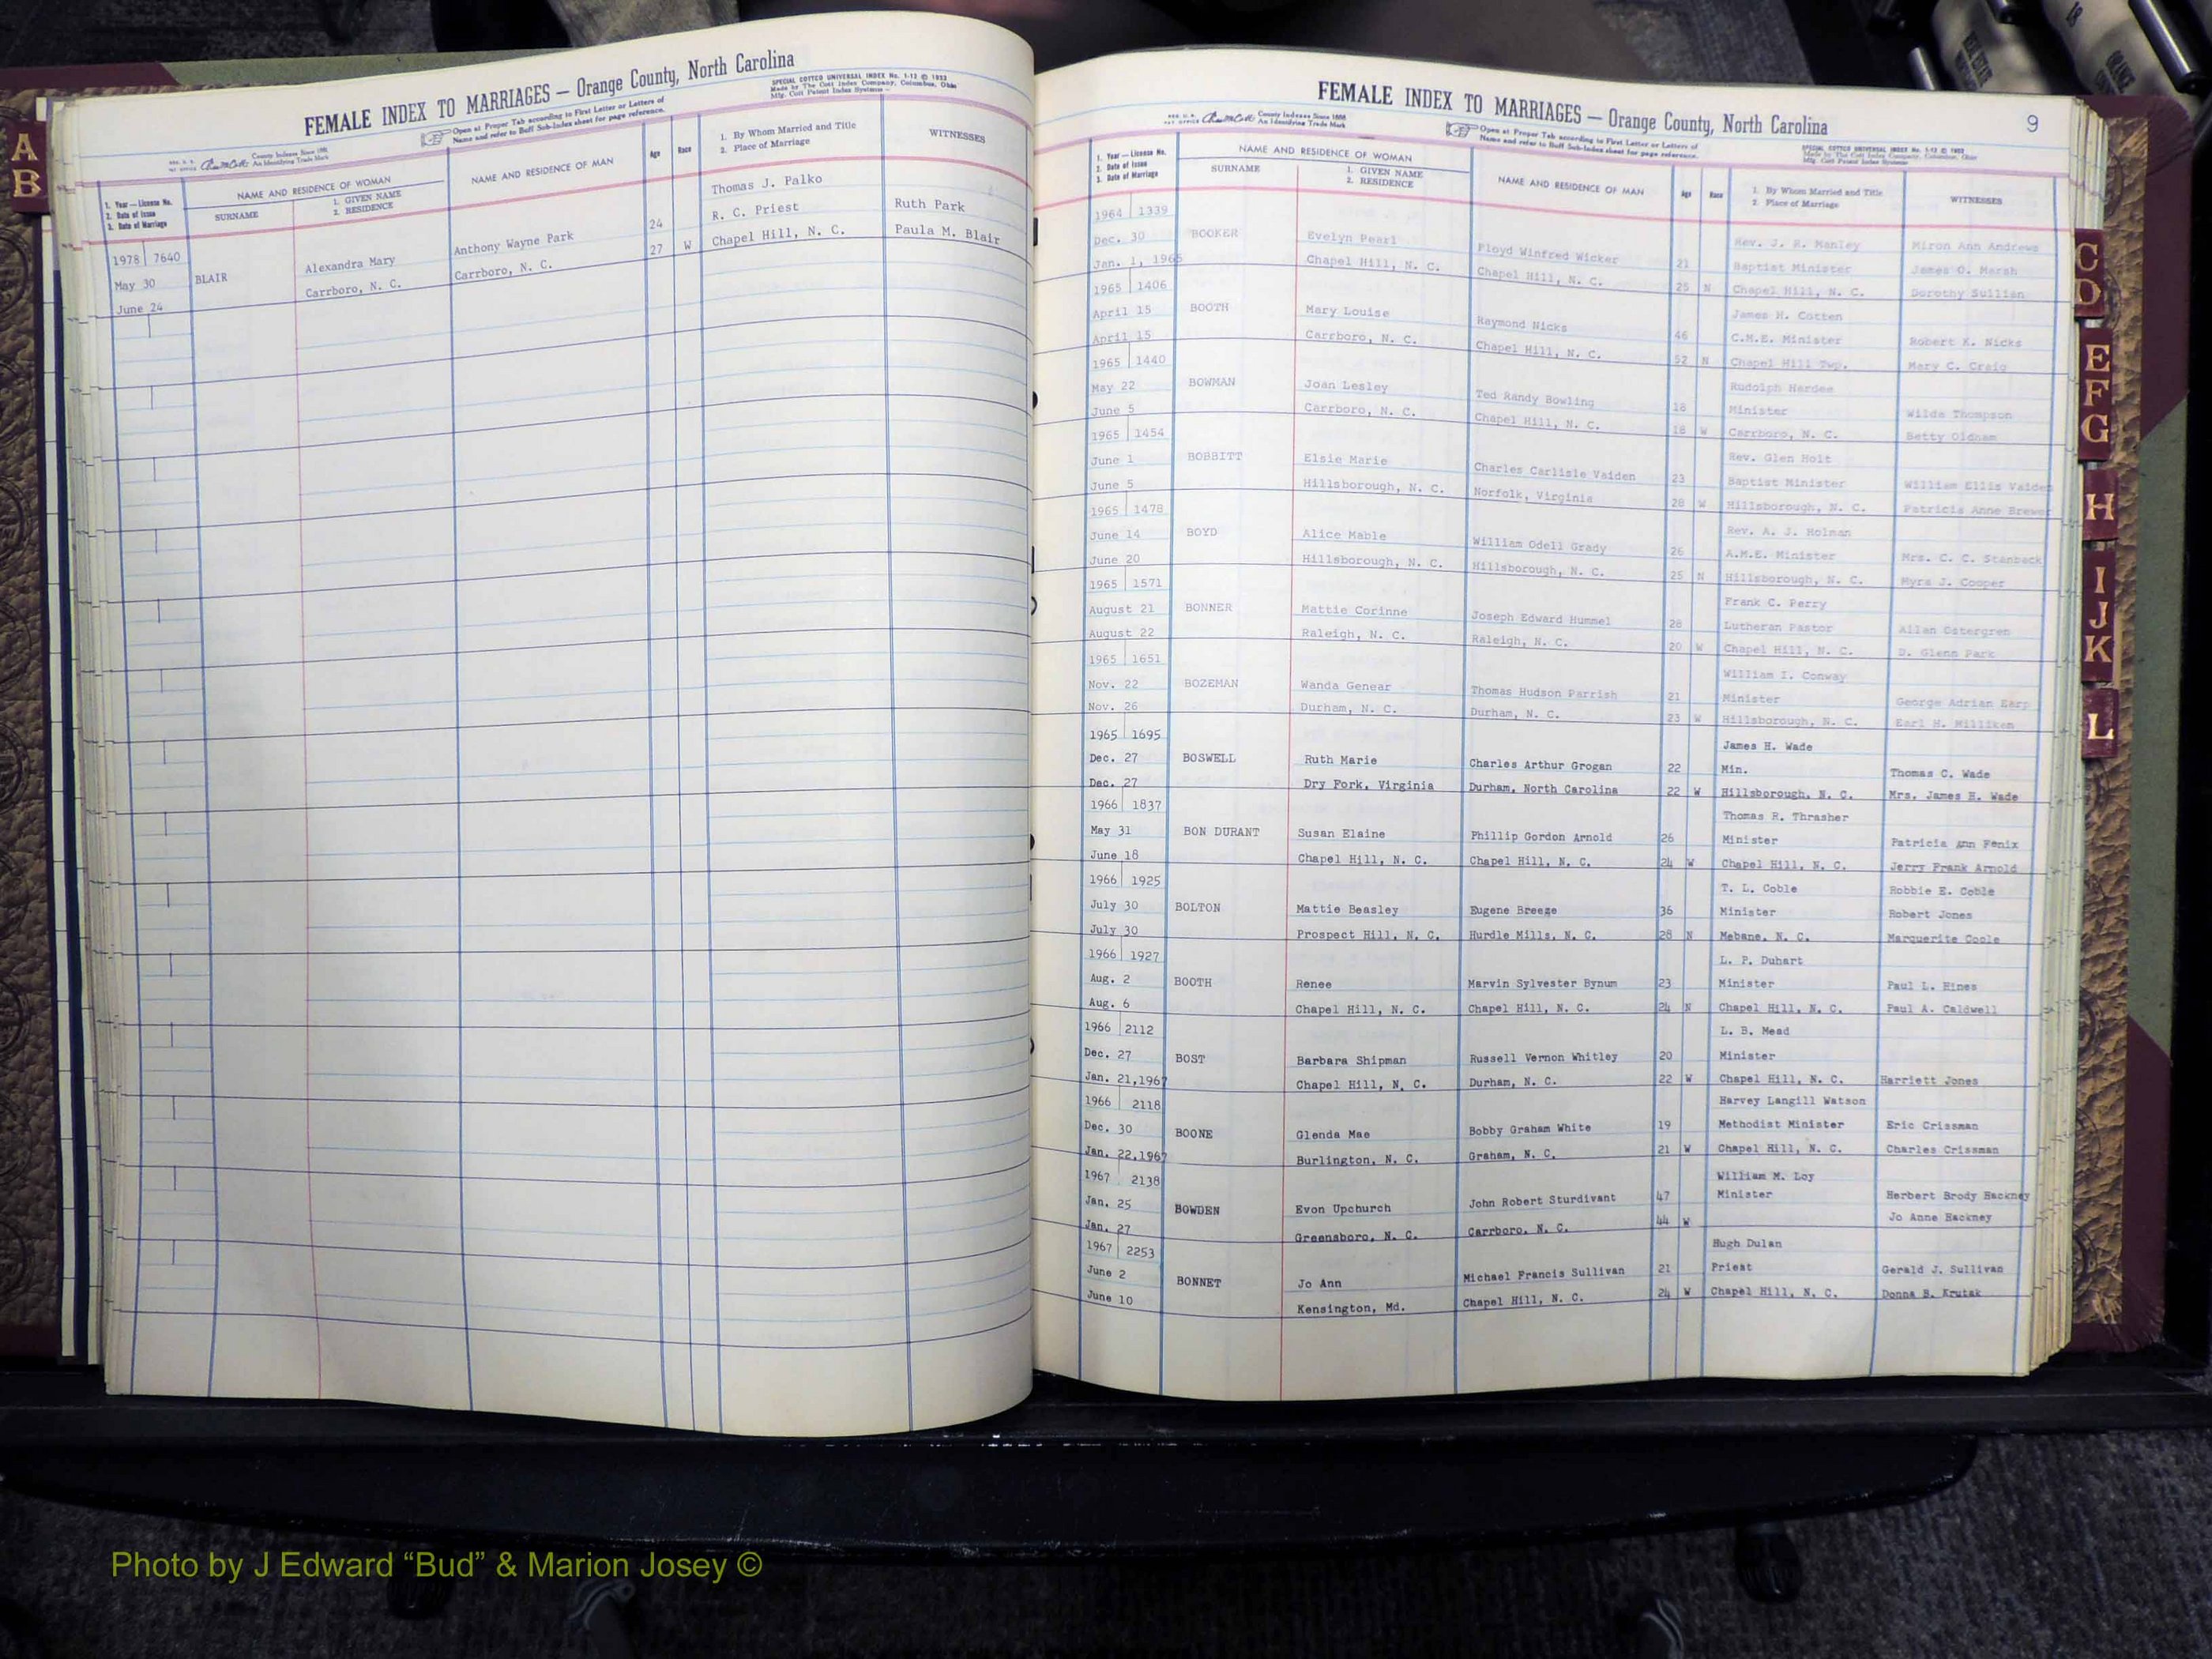 FEMALE INDEX TO MARRIAGES — Orange County, North Carolina
SPECIAL COTTCO UNIVERSAL INDEX No. 1-12 © 1953
Made by The Cott Index Company, Columbus, Ohio
Open at Proper Tab according to First Letter or Letters of
Name and refer to Buff Sub-Index sheet for page reference.
County Indexes Since 1888
An Identifying Trade Mark
1. Year — License No.
2. Date of Issue
3. Date of Marriage
NAME AND RESIDENCE OF WOMAN
SURNAME
1. GIVEN NAME
2. RESIDENCE
NAME AND RESIDENCE OF MAN
Age
Race
1. By Whom Married and Title
2. Place of Marriage
WITNESSES
1978 7640 Thomas J. Palko
May 30 BLAIR Alexandra Mary Anthony Wayne Park 24 R. C. Priest Ruth Park
June 24 Carrboro, N. C. Carrboro, N. C. 27 W Chapel Hill, N. C. Paula M. Blair
FEMALE INDEX TO MARRIAGES — Orange County, North Carolina
9
County Indexes Since 1888
An Identifying Trade Mark
Open at Proper Tab according to First Letter or Letters of
Name and refer to Buff Sub-Index sheet for page reference.
1. Year — License No.
2. Date of Issue
3. Date of Marriage
NAME AND RESIDENCE OF WOMAN
SURNAME
1. GIVEN NAME
2. RESIDENCE
NAME AND RESIDENCE OF MAN
Age
Race
1. By Whom Married and Title
2. Place of Marriage
WITNESSES
1964 1339 Rev. J. R. Manley Miron Ann Andrews
Dec. 30 BOOKER Evelyn Pearl Floyd Winfred Wicker 21 Baptist Minister James O. Marsh
Jan. 1, 1965 Chapel Hill, N. C. Chapel Hill, N. C. 25 N Chapel Hill, N. C. Dorothy
1965 1406 James H. Cotten
April 15 BOOTH Mary Louise Raymond Nicks 46 C.M.E. Minister Robert K. Nicks
April 15 Carrboro, N. C. Chapel Hill, N. C. 52 N Chapel Hill Twp. Mary C. Craig
1965 1440 Rudolph Hardee
May 22 BOWMAN Joan Lesley Ted Randy Bowling 18 Minister Wilda Thompson
June 5 Carrboro, N. C. Chapel Hill, N. C. 18 W Carrboro, N. C. Betty Oldham
1965 1454 Rev. Glen Holt
June 1 BOBBITT Elsie Marie Charles Carlisle Vaiden 23 Baptist Minister William Ellis Vaiden
June 5 Hillsborough, N. C. Norfolk, Virginia 28 W Hillsborough, N. C. Patricia Anne Brewer
1965 1478 Rev. A. J. Holman
June 14 BOYD Alice Mable William Odell Grady 26 A.M.E. Minister Mrs. C. C. Stanback
June 20 Hillsborough, N. C. Hillsborough, N. C. 25 N Hillsborough, N. C. Myra J. Cooper
1965 1571 Frank C. Perry
August 21 BONNER Mattie Corinne Joseph Edward Hummel 28 Lutheran Pastor Allan Ostergren
August 22 Raleigh, N. C. Raleigh, N. C. 20 W Chapel Hill, N. C. D. Glenn Park
1965 1651 William I. Conway
Nov. 22 BOZEMAN Wanda Genear Thomas Hudson Parrish 21 Minister George Adrian Earp
Nov. 26 Durham, N. C. Durham, N. C. 23 W Hillsborough, N. C. Earl H. Milliken
1965 1695 James H. Wade
Dec. 27 BOSWELL Ruth Marie Charles Arthur Grogan 22 Min. Thomas C. Wade
Dec. 27 Dry Fork, Virginia Durham, North Carolina 22 W Hillsborough, N. C. Mrs. James H. Wade
1966 1837 Thomas R. Thrasher
May 31 BON DURANT Susan Elaine Phillip Gordon Arnold 26 Minister Patricia Ann Fenix
June 18 Chapel Hill, N. C. Chapel Hill, N. C. 24 W Chapel Hill, N. C. Jerry Frank Arnold
1966 1925 T. L. Coble Robbie E. Coble
July 30 BOLTON Mattie Beasley Eugene Breeze 36 Minister Robert Jones
July 30 Prospect Hill, N. C. Hurdle Mills, N. C. 28 N Mebane, N. C. Marguerite
1966 1927 L. P. Duhart
Aug. 2 BOOTH Renee Marvin Sylvester Bynum 23 Minister Paul L. Hines
Aug. 6 Chapel Hill, N. C. Chapel Hill, N. C. 24 N Chapel Hill, N. C. Paul A. Caldwell
1966 2112 L. B. Mead
Dec. 27 BOST Barbara Shipman Russell Vernon Whitley 20 Minister
Jan. 21,1967 Chapel Hill, N. C. Durham, N. C. 22 W Chapel Hill, N. C. Harriett Jones
1966 2118 Harvey Langill Watson
Dec. 30 BOONE Glenda Mae Bobby Graham White 19 Methodist Minister Eric Crissman
Jan. 22,1967 Burlington, N. C. Graham, N. C. 21 W Chapel Hill, N. C. Charles Crissman
1967 2138 William M. Loy
Jan. 25 BOWDEN Evon Upchurch John Robert Sturdivant 47 Minister Herbert Brody Hackney
Jan. 27 Greensboro, N. C. Carrboro, N. C. 44 W Jo Anne Hackney
1967 2253 Hugh Dulan
June 2 BONNET Jo Ann Michael Francis Sullivan 21 Priest Gerald J. Sullivan
June 10 Kensington, Md. Chapel Hill, N. C. 24 W Chapel Hill, N. C. Donna B. Krutak
A
B
C
D
E
F
G
H
I
J
K
L
Photo by J Edward “Bud” & Marion Josey ©